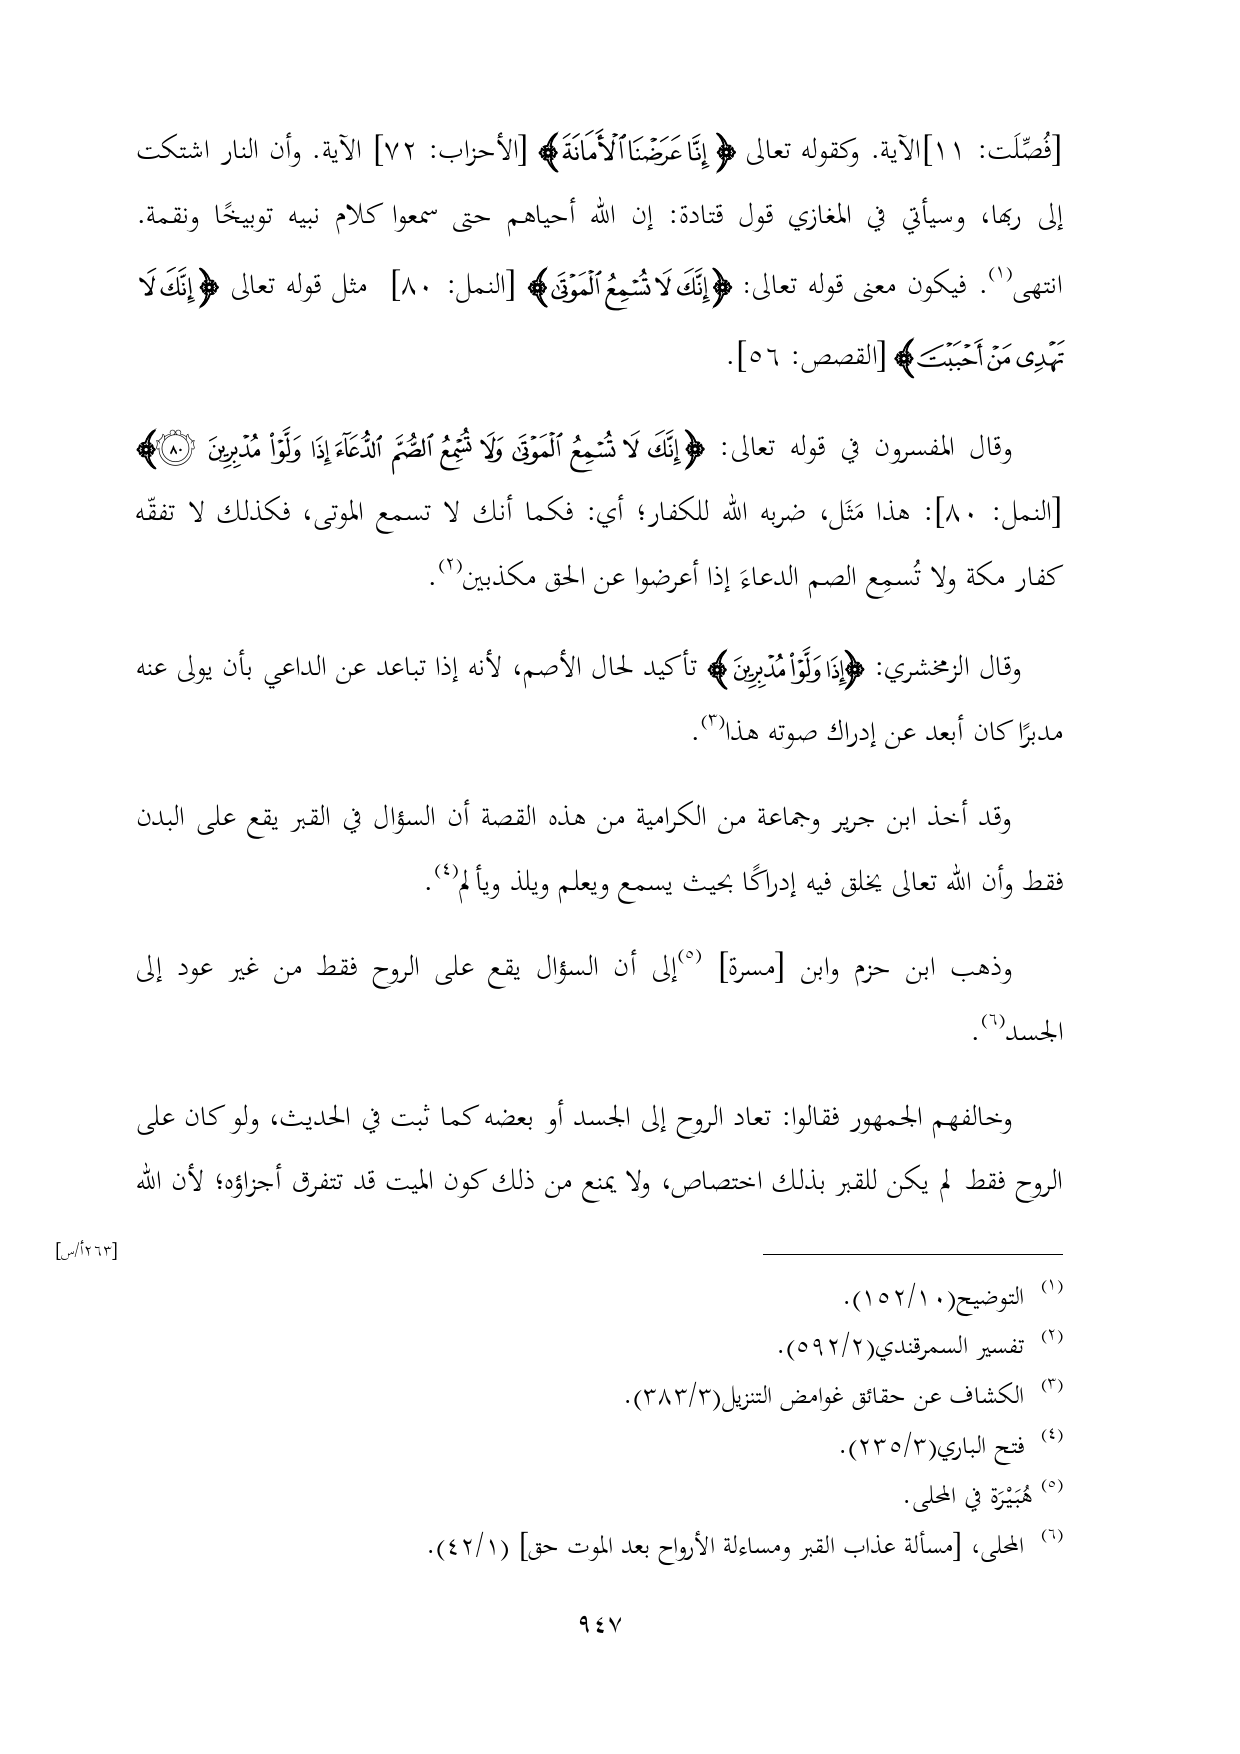 [فُصِّلَت: ١١]الآية. وكقوله تعالى ﴿إِنَّا عَرَضْنَا ٱلْأَمَانَةَ﴾ [الأحزاب: ٧٢] الآية. وأن النار اشتكت
إلى ربها، وسيأتي في المغازي قول قتادة: إن الله أحياهم حتى سمعوا كلام نبيه توبيخًا ونقمة.
انتهى(١). فيكون معنى قوله تعالى: ﴿إِنَّكَ لَا تُسْمِعُ ٱلْمَوْتَىٰ﴾ [النمل: ٨٠] مثل قوله تعالى ﴿إِنَّكَ لَا
تَهْدِى مَنْ أَحْبَبْتَ﴾ [القصص: ٥٦].
وقال المفسرون في قوله تعالى: ﴿إِنَّكَ لَا تُسْمِعُ ٱلْمَوْتَىٰ وَلَا تُسْمِعُ ٱلصُّمَّ ٱلدُّعَآءَ إِذَا وَلَّوْا۟ مُدْبِرِينَ ٨٠﴾
[النمل: ٨٠]: هذا مَثَل، ضربه الله للكفار؛ أي: فكما أنك لا تسمع الموتى، فكذلك لا تفقّه
كفار مكة ولا تُسمِع الصم الدعاءَ إذا أعرضوا عن الحق مكذبين(٢).
وقال الزمخشري: ﴿إِذَا وَلَّوْا۟ مُدْبِرِينَ﴾ تأكيد لحال الأصم، لأنه إذا تباعد عن الداعي بأن يولى عنه
مدبرًا كان أبعد عن إدراك صوته هذا(٣).
وقد أخذ ابن جرير وجماعة من الكرامية من هذه القصة أن السؤال في القبر يقع على البدن
فقط وأن الله تعالى يخلق فيه إدراكًا بحيث يسمع ويعلم ويلذ ويألم(٤).
وذهب ابن حزم وابن [مسرة] (٥)إلى أن السؤال يقع على الروح فقط من غير عود إلى
الجسد(٦).
وخالفهم الجمهور فقالوا: تعاد الروح إلى الجسد أو بعضه كما ثبت في الحديث، ولو كان على
الروح فقط لم يكن للقبر بذلك اختصاص، ولا يمنع من ذلك كون الميت قد تتفرق أجزاؤه؛ لأن الله
[٢٦٣أ/س]
(١) التوضيح(١٥٢/١٠).
(٢) تفسير السمرقندي(٥٩٢/٢).
(٣) الكشاف عن حقائق غوامض التنزيل(٣٨٣/٣).
(٤) فتح الباري(٢٣٥/٣).
(٥) هُبَيْرَة في المحلى.
(٦) المحلى، [مسألة عذاب القبر ومساءلة الأرواح بعد الموت حق] (٤٢/١).
٩٤٧